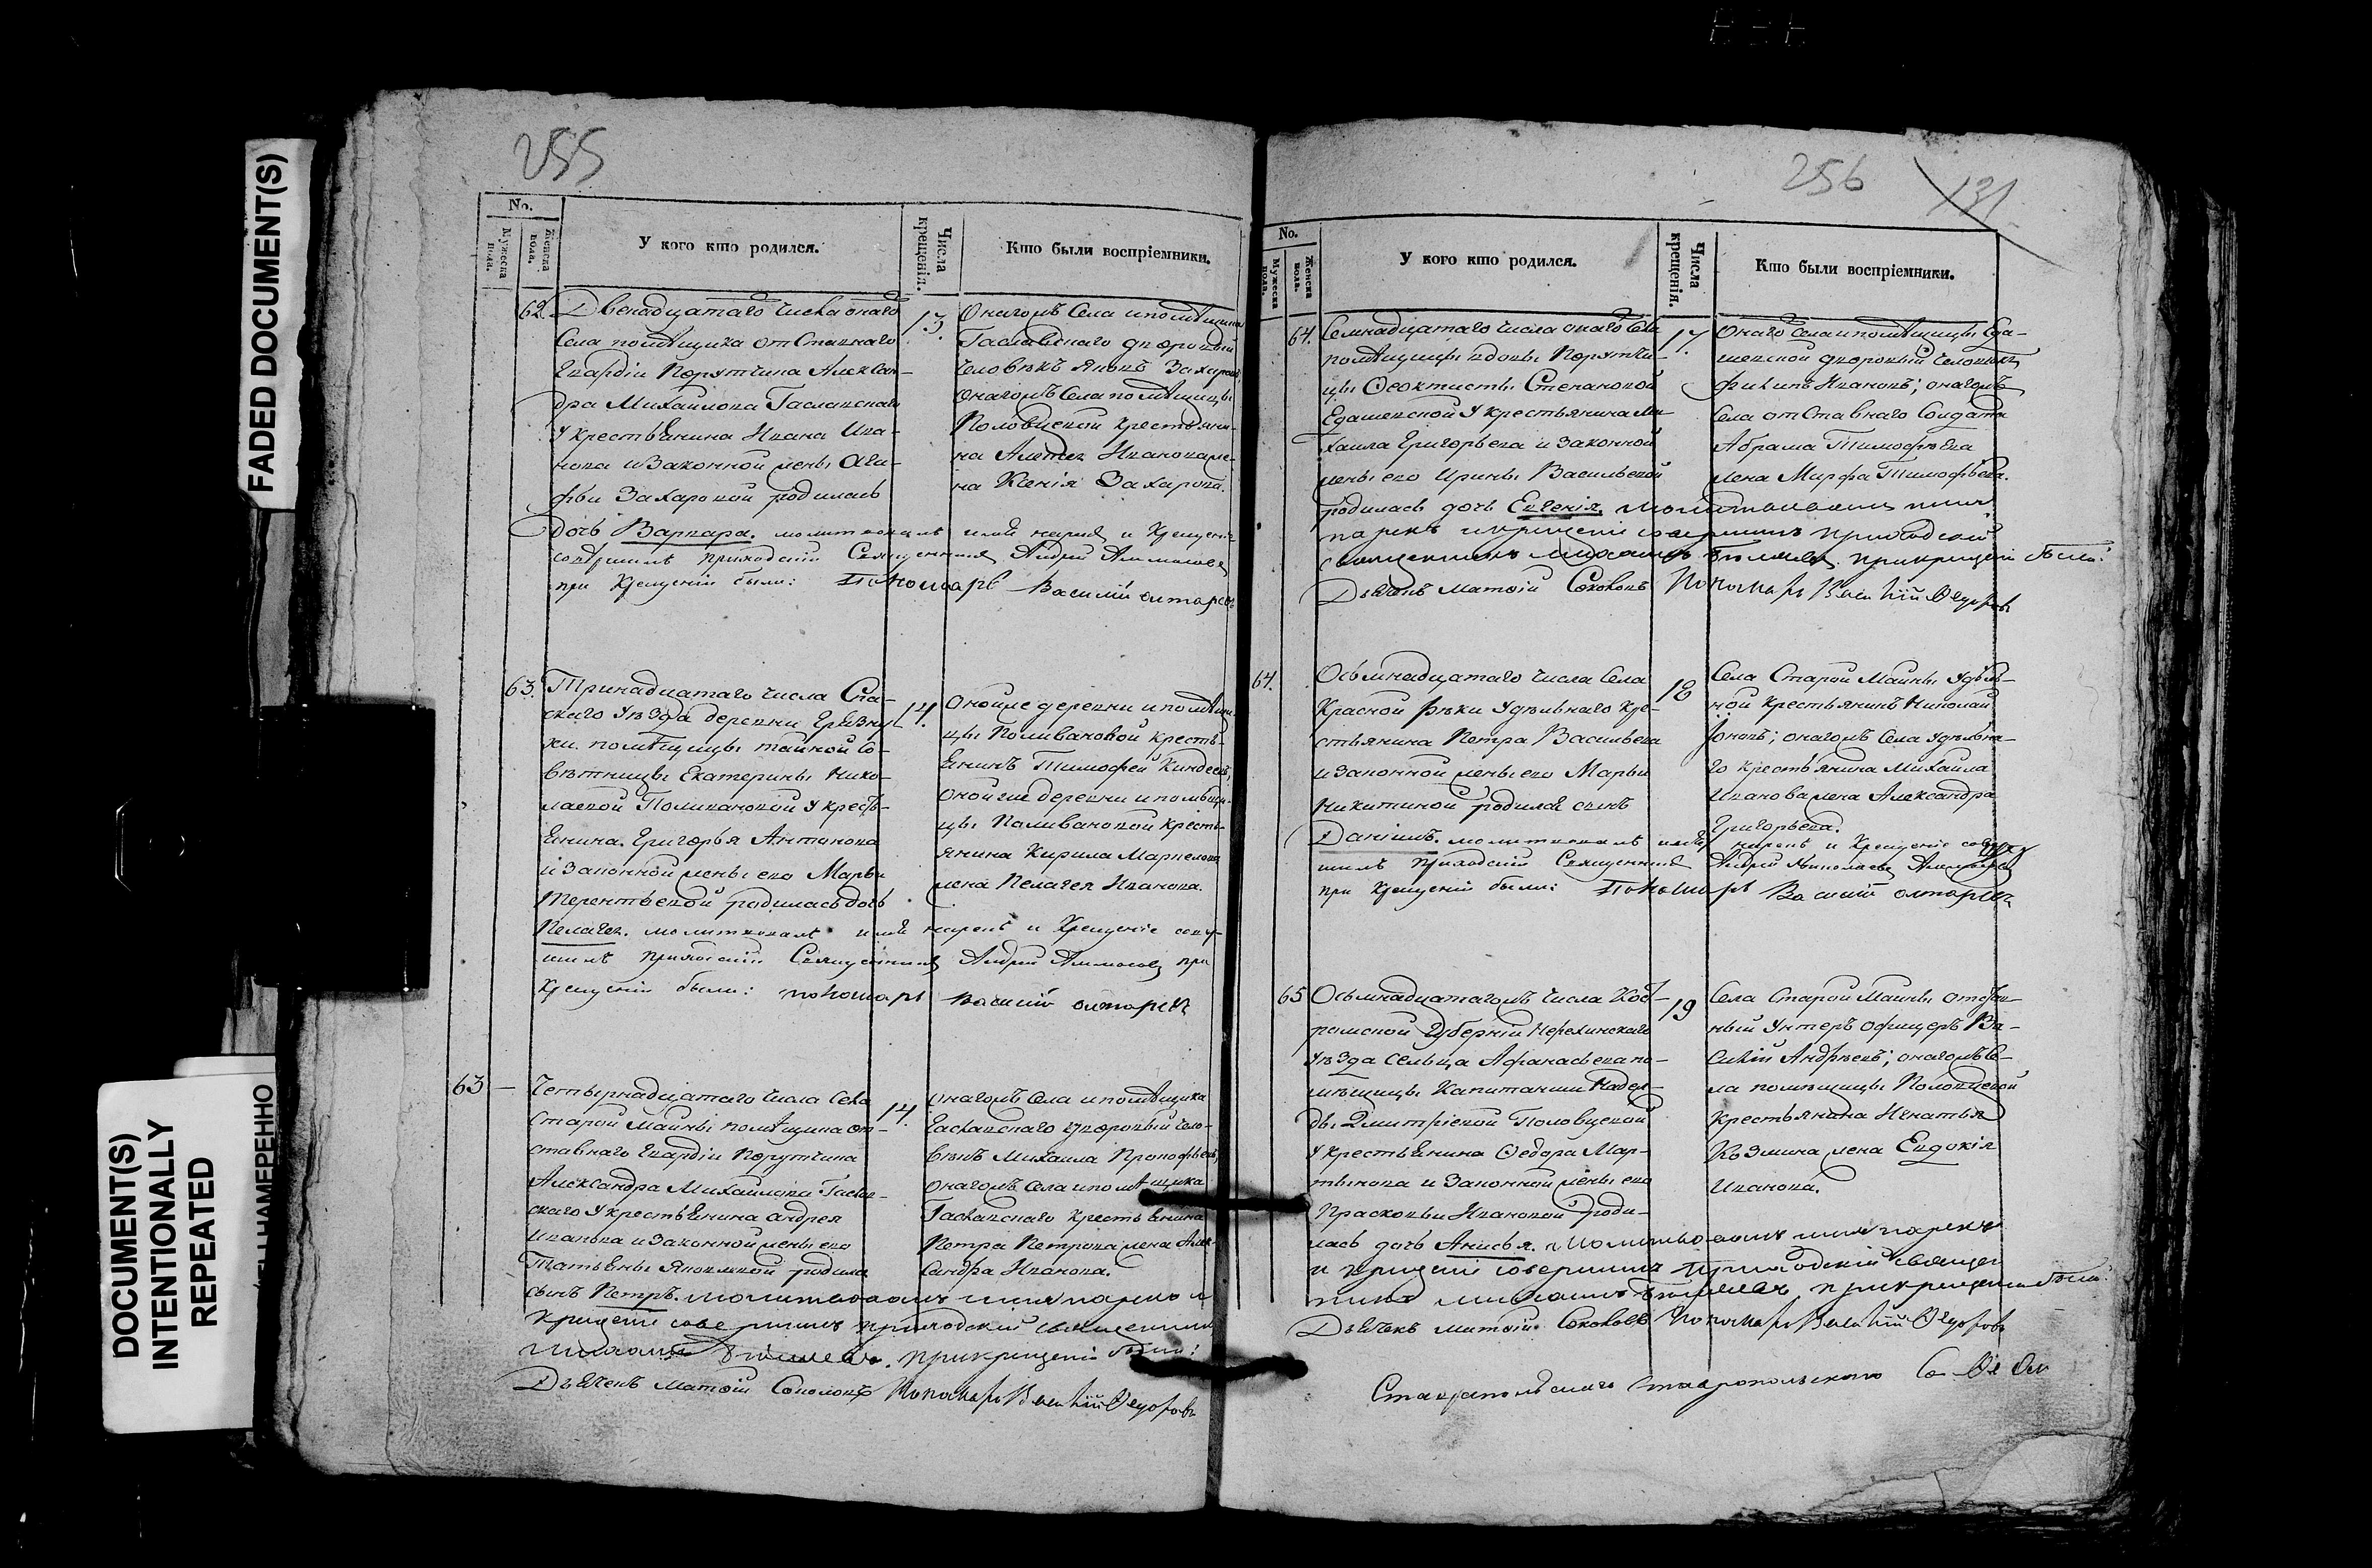 FADED DOCUMENT(S)
DOCUMENT(S)
INTENTIONALLY
REPEATED
НАМЕРЕННО
255
No.
Мужеска пола.
Женска пола.
У кого кто родился.
Числа крещенія.
Кто были воспріемники.
62.
Двенадцатаго числа онаго
села помѣщика отставнаго
Гвардіи Порутчика Алексан-
дра Михайлова Гаславскаго
у крестьянина Ивана Ива-
нова и законной жены Ага-
фьи Захаровой родилась
дочь Варвара. молитвовалъ имя нарекъ и Крещеніе
совершилъ приходскій Священникъ Андрей
при Крещеніи были: Пономарь Василій
13.
Онагожъ села и помѣщика
Гаславскаго дворовый
человѣкъ Яковъ Захаровъ,
онагожъ села помѣщицы
Половцевой крестьяни-
на Ивановаже-
на Ксенія Захарова.
63.
Тринадцатаго числа Спа-
скаго уѣзда деревни Грязну-
хи. помѣщицы тайной Со-
вѣтницы Екатерины Нико-
лаевой Поливановой у кресть-
янина. Григорья Антонова
и законной жены его Марьи
Терентьевой родилась дочь
Пелагея. молитвовалъ имя нарекъ и Крещеніе совер-
шилъ приходскій Священникъ Андрей при
Крещеніи были: пономарь Василій
14.
Онойже деревни и помѣщи-
цы Поливановой кресть-
янинъ Тимофей
онойже деревни и помѣщи-
цы Поливановой кресть-
янина Кирила Маркелова
жена Пелагея Иванова.
63 —
Четырнадцатаго числа Села
Старой Майны помѣщика от-
ставнаго Гвардіи Порутчика
Александра Михайлова Гаслав-
скаго у крестьянина Андрея
Иванова и законной жены его
Татьяны Яковлевой родился
сынъ Петръ. молитвовалъ имя нарекъ и
крещеніе совершилъ приходскій священникъ
Михаилъ при крещеніи были:
Дьячекъ Матвій Соколовъ Пономарь Василій Ѳедоровъ
14.
онагожъ села и помѣщика
Гаславскаго дворовый чело-
вѣкъ Михаила Прокофьевъ,
онагожъ села и помѣщика
Гаславскаго крестьянина
Петра Петрова жена Алек-
сандра Иванова.
256
131
No.
Мужеска пола.
Женска пола.
У кого кто родился.
Числа крещенія.
Кто были воспріемники.
64.
Семнадцатаго числа онаго села
помѣщицы вдовы Порутчи-
цы Ѳеоктисты Степановой
Едашевской у крестьянина Ми-
хаила Григорьева и законной
жены его Ирины Васильевой
родилась дочь Евгенія. молитвовалъ имя
нарекъ и крещеніе совершилъ приходской
священникъ Михаилъ при крещеніи были:
Дьячекъ Матвій Соколовъ Пономарь Василій Ѳедоровъ
17.
Онаго села и помѣщицы Еда-
шевской дворовый человекъ
Филипъ Ивановъ; онагожъ
села отставнаго Солдата
Абрама Тимофѣева
жена Марфа Тимофѣева.
64.
Осьмнадцатаго числа Села
Красной Рѣки удѣльнаго кре-
стьянина Петра Васильева
и законной жены его Марьи
Никитиной родился сынъ
Даніилъ. молитвовалъ имя нарекъ и Крещеніе совер-
шилъ приходскій Священникъ Андрей Николаевъ
при Крещеніи были: Пономарь Василій
18
Села Старой Майны удѣль-
ной крестьянинъ Николай
онагожъ села удѣльна-
го крестьянина Михаила
Иванова жена Александра
Григорьева.
65
Осьмнадцатагожъ числа Кос-
тромской Губерніи Нерехинскаго
уѣзда сельца Афанасьева по-
мѣщицы Капитанши Надеж-
ды Дмитріевой Половцевой
у крестьянина Ѳедора Мар-
тынова и законной жены его
Прасковьи Ивановой роди-
лась дочь Анисья. молитвовалъ имя нарекъ
и крещеніе совершилъ приходскій священ
никъ Михаилъ при крещеніи были:
Дьячекъ Матвій Соколовъ Пономарь Василій Ѳедоровъ
19
Села Старой Майны отстав-
ный унтеръ офицеръ Ва-
силій Андрѣевъ; онагожъ се-
ла помѣщицы Половцевой
крестьянина Игнатья
Козмина жена Евдокія
Иванова.
Ставропольскаго